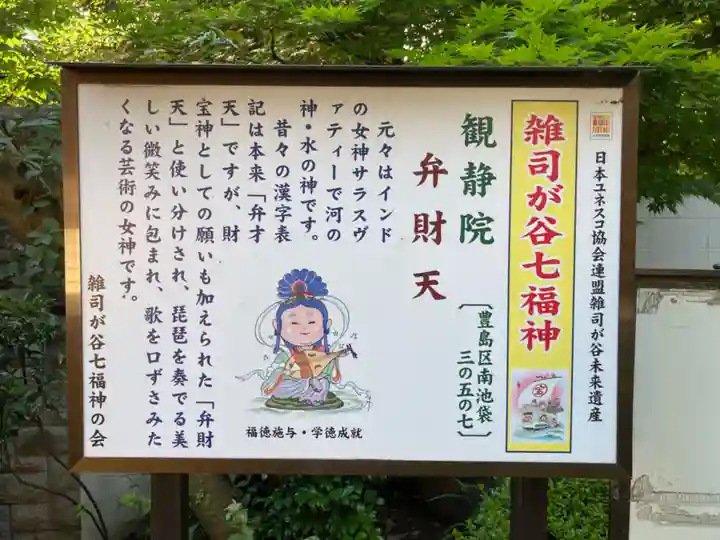 日本ユネスコ協会連盟雑司が谷未来遺産
雑司が谷七福神
観静院
〔豊島区南池袋
三の五の七〕
弁財天
元々はインド
の女神サラスヴ
ァティーで河の
神・水の神です。
昔々の漢字表
記は本来「弁才
天」ですが、財
宝神としての願いも加えられた「弁財
天」と使い分けされ、琵琶を奏でる美
しい微笑みに包まれ、歌を口ずさみた
くなる芸術の女神です。
福徳施与・学徳成就
雑司が谷七福神の会